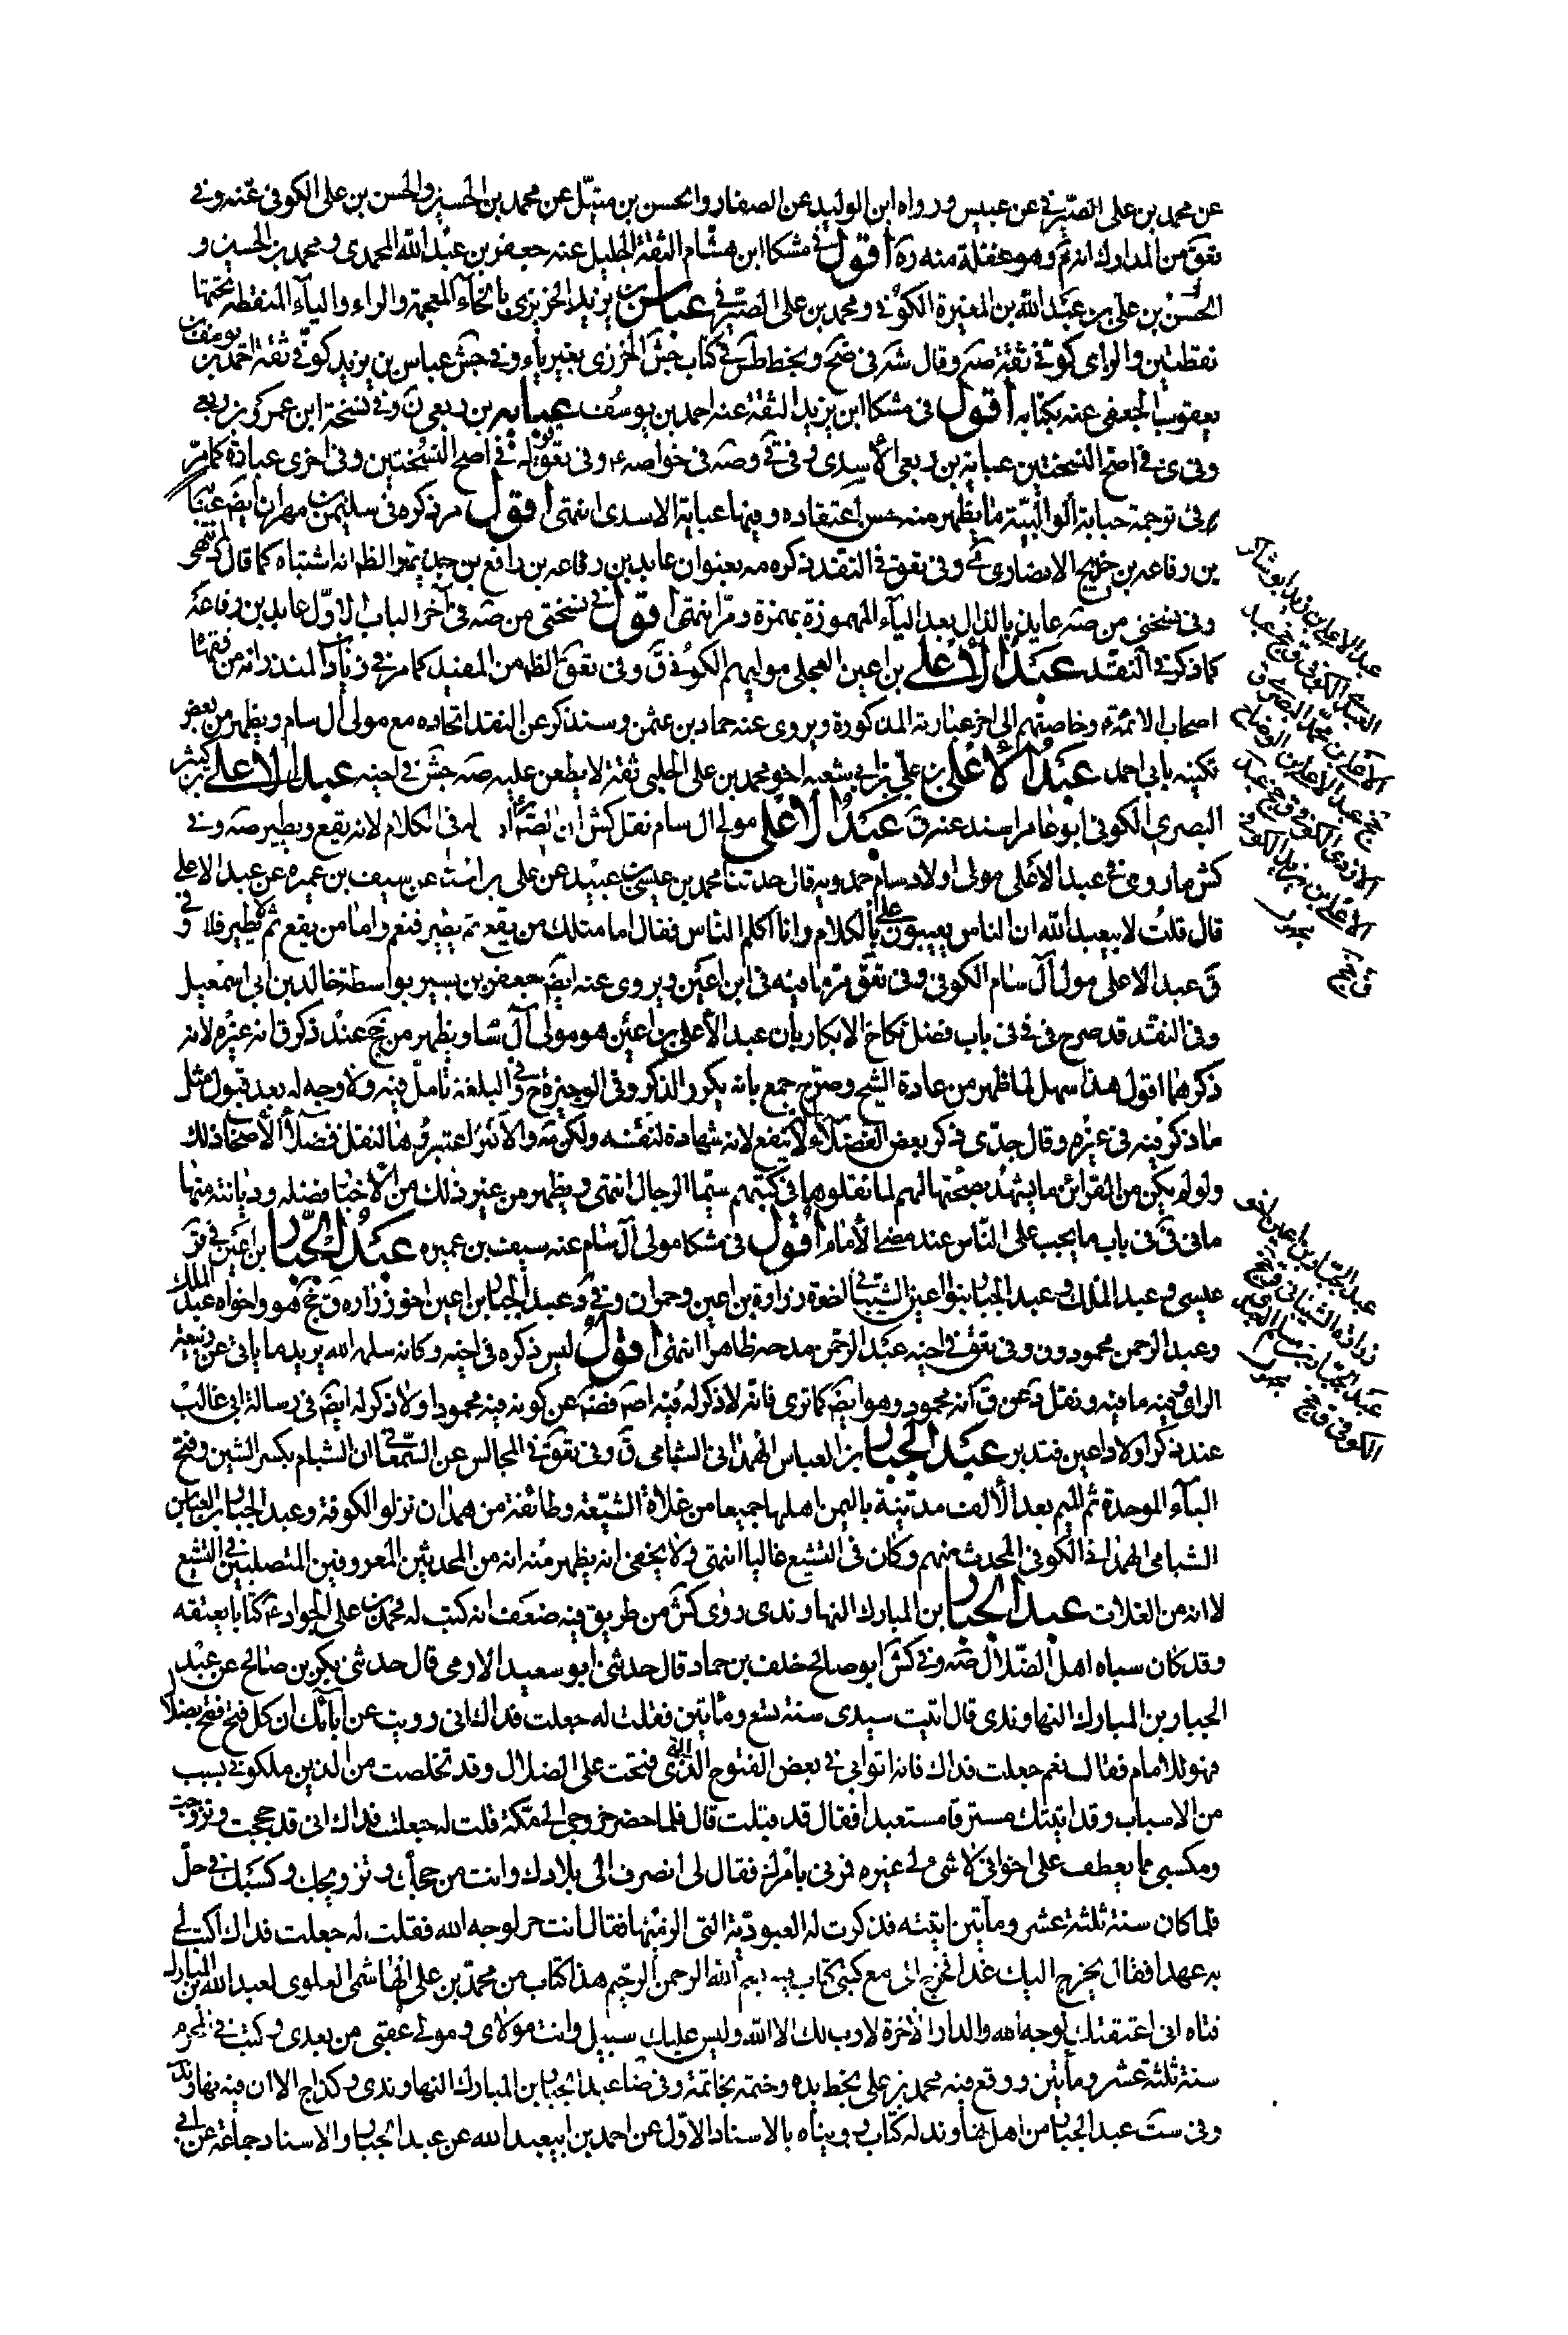 عن محمد بن على الصيرفى عن عبيس ورواه ابن الوليد عن الصفار والحسن بن متيل عن محمد بن الحسين والحسن بن على الكوفى عنه وفى
تعق من المدارك انه وهو غفلة منه ره اقول فى مشكا ابن هشام الثقة الجليل عنه جعفر بن عبد الله المحمدى ومحمد بن الحسين و
الحسن بن على بن عبد الله بن المغيرة الكوفى ومحمد بن على الصيرفى عباس بن يزيد الخريزى بالخاء المعجمة والراء والياء المنقطة تحتها
نقطتين والزاى كوفى ثقة صه وقال شه فى ضح وبخط طس فى كتاب جش الخرزى بغير ياء وفى جش عباس بن يزيد كوفى ثقة احمد بن يوسف بن
يعقوب الجعفى عنه بكتابه اقول فى مشكا ابن يزيد الثقة عنه احمد بن يوسف عبايه بن ربعى ن وفى نسخة ابن عمرو بن ربعى
وفى ى فى اصح النسختين عباية بن ربعى الاسدى وفى قى وصه فى خواصه ع وفى تعق له فى اصح النسختين وفى اخرى عبادة كما مر
وفى ترجمة حبابة الوالبية ما يظهر منه حسن اعتقاده وفيها عباية الاسدى انتهى اقول مر ذكره فى سليمن بن مهران ايضا عباية
بن رفاعه بن خديج الانصارى ى وفى تعق فى النقد ذكره مه بعنوان عايد بن رفاعه بن رافع بن خديج ثم والظ انه اشتباه كما قال انتهى
وفى نسختى من صه عايذ بالذال بعد الياء المهموزة بهمزة ومر انتهى اقول فى نسختى من صه فى اخر الباب الاول عايد بن رفاعة
كما ذكره فى النقد عبد الاعلى بن اعين العجلى مولاهم الكوفى ق وفى تعق الظ من المفيد كما مر فى زياد المنذر انه من فقهاء
اصحاب الائمة وخاصتهم الى اخر عبارته المذكورة ويروى عنه حماد بن عثمن وسنذكر عن النقد اتحاده مع مولى ال سام ويظهر من بعض
تكنيه بابى احمد عبد الاعلى بن على بن ابى شعبه اخو محمد بن على الحلبى ثقة لا يطعن عليه صه جش فى اخيه عبد الاعلى بن كثير
البصرى الكوفى ابو عامر اسند عنه ق عبد الاعلى مولى ال سام نقل كش ان الصادق اذن له فى الكلام لانه يقع ويطير صه وفى
كش ما روى فى عبد الاعلى مولى اولاد سام حمدويه قال حدثنا محمد بن عيسى بن عبيد عن على بن اسباط عن سيف بن عميره عن عبد الاعلى
قال قلت لابيعبد الله ان الناس يعيبون على بالكلام وانا اكلم الناس فقال اما مثلك من يقع ثم يطير فنعم واما من يقع ثم لا يطير فلا وفى
ق عبد الاعلى مولى آل سام الكوفى وفى تعق مر ما فيه فى ابن اعين ويروى عنه ايضا جعفر بن بشير بواسطة خالد بن ابى اسمعيل
وفى النقد قد صرح فى فى فى باب فضل نكاح الابكار بان عبد الاعلى بن اعين هو مولى آل سام ويظهر من جخ عند ذكر ق انه غيره لانه
ذكرهما اقول هذا سهل لما ظهر من عادة الشيخ وصرح جمع بانه يكرر الذكر وفى الوجيزة ح وفى البلغة تامل فيه ولا وجه له بعد قبول مثل
ما ذكر فيه فى غيره وقال جدى ذكر بعض الفضلاء ولا ينفع لانه شهادة لنفسه ولكن مه والاكثر اعتبروها لنقل فضلاء الاصحاب ذلك
ولو لم يكن من القرائن ما يشهد بصحتها لهم لما نقلوها فى كتبهم سيما الرجال انتهى ويظهر من غير ذلك من الاخبار فضله وديانته منها
ما فى فى فى باب ما يجب على الناس عند مضى الامام اقول فى مشكا مولى آل سام عنه سيف بن عميره عبد الجبار بن اعين فى قر
عيسى وعبد الملك وعبد الجبار بنو اعين الشيبانى اخوة زرارة بن اعين وحمران وفى د عبد الجبار بن اعين اخو زراره ق جخ هو واخواه عبد الملك
وعبد الرحمن محمودون وفى تعق فى اخيه عبد الرحمن مدحه ظاهرا انتهى اقول ليس ذكره فى اخيه وكانه سلمه الله يريد ما ياتى عن ربيعة
الراى وفيه ما فيه ونقل د عن ق انه محمود وهو ايضا كما ترى فانه لا ذكر له فيه اصلا فضلا عن كونه فيه محمودا ولا ذكر له ايضا فى رسالة ابى غالب
عند ذكر اولاد اعين فتدبر عبد الجبار بن العباس الهمدانى الشبامى ق وفى تعق فى المجالس عن السمعانى ان الشبام بكسر الشين وفتح
الباء الموحدة ثم الميم بعد الالف مدينة باليمن اهلها جميعا من غلاة الشيعة وطائفة من همدان نزلوا الكوفة وعبد الجبار بن العباس
الشبامى الهمدانى الكوفى المحدث منهم وكان فى التشيع غاليا انتهى ولا يخفى انه يظهر منه انه من المحدثين المعروفين المتصلبين فى التشيع
لا انه من الغلات عبد الجبار بن المبارك النهاوندى روى كش من طريق فيه ضعف انه كتب له محمد بن على الجواد ع كتابا بعتقه
وقد كان سباه اهل الضلال صه وفى كش ابو صالح خلف بن حماد قال حدثنى ابو سعيد الادمى قال حدثنى بكر بن صالح عن عبد
الجبار بن المبارك النهاوندى قال اتيت سيدى سنة تسع ومائتين فقلت له جعلت فداك انى رويت عن آبائك ان كل فتح فتح بضلال
فهو للامام فقال نعم جعلت فداك فانه اتوا بى فى بعض الفتوح التى فتحت على الضلال وقد تخلصت من الذين ملكونى بسبب
من الاسباب وقد اتيتك مسترقا مستعبدا فقال قد قبلت قال فلما حضر خروجى الى مكة قلت له جعلت فداك انى قد حججت وتزوجت
ومكسبى مما يعطف على اخوانى لا شىء لى غيره فمرنى بامرك فقال لى انصرف الى بلادك وانت من حجك وتزويجك وكسبك فى حل
فلما كان سنة ثلثة عشر ومأتين اتيته فذكرت له العبودية التى الزمتها فقال انت حر لوجه الله فقلت له جعلت فداك اكتب لى
به عهدا فقال يخرج اليك غدا فخرج الى مع كتبى كتاب فيه بسم الله الرحمن الرحيم هذا كتاب من محمد بن على الهاشمى العلوى لعبد الله بن المبارك
فتاه انى اعتقتك لوجه الله والدار الاخرة لا رب لك الا الله وليس عليك سبيل وانت مولاى ومولى عقبى من بعدى وكتب فى المحرم
سنة ثلثة عشر ومأتين ووقع فيه محمد بن على بخط يده وختمه بخاتمه وفى ضا عبد الجبار بن المبارك النهاوندى وكذا ج الا ان فيه نهاوند
وفى ست عبد الجبار من اهل نهاوند له كتاب رويناه بالاسناد الاول عن احمد بن ابيعبد الله عن عبد الجبار والاسناد جماعة عن ابى
عبد الاعلى بن زيد ابو شاكر
العبدى الكوفى ق جخ عبد
الاعلى بن محمد البصرى ق
جخ عبد الاعلى بن الوضاح
الازدى الكوفى ق جخ عبد
الاعلى بن يزيد الكوفى
ق جخ
عبد الجبار بن اعين اخو
زرارة الشيبانى ق جخ
عبد الجبار بن مسلم العبدى
الكوفى ق جخ